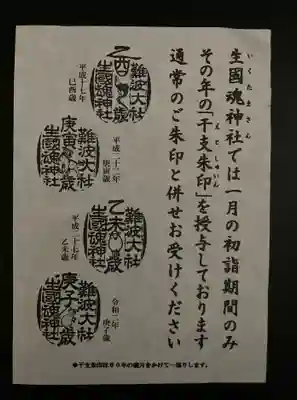 いくたまさん
生國魂神社では一月の初詣期間のみ
えとしゅいん
その年の「干支朱印」を授与しております
通常のご朱印と併せお受けください
難波大社
乙酉歳
生國魂神社
平成十七年
難波大社
庚寅歳
生國魂神社
平成二十二年
庚寅歳
難波大社
乙未歳
生國魂神社
平成二十七年
乙未歳
難波大社
庚子歳
生國魂神社
令和二年
庚子歳
◆干支朱印は60年の歳月をかけて一巡りします。